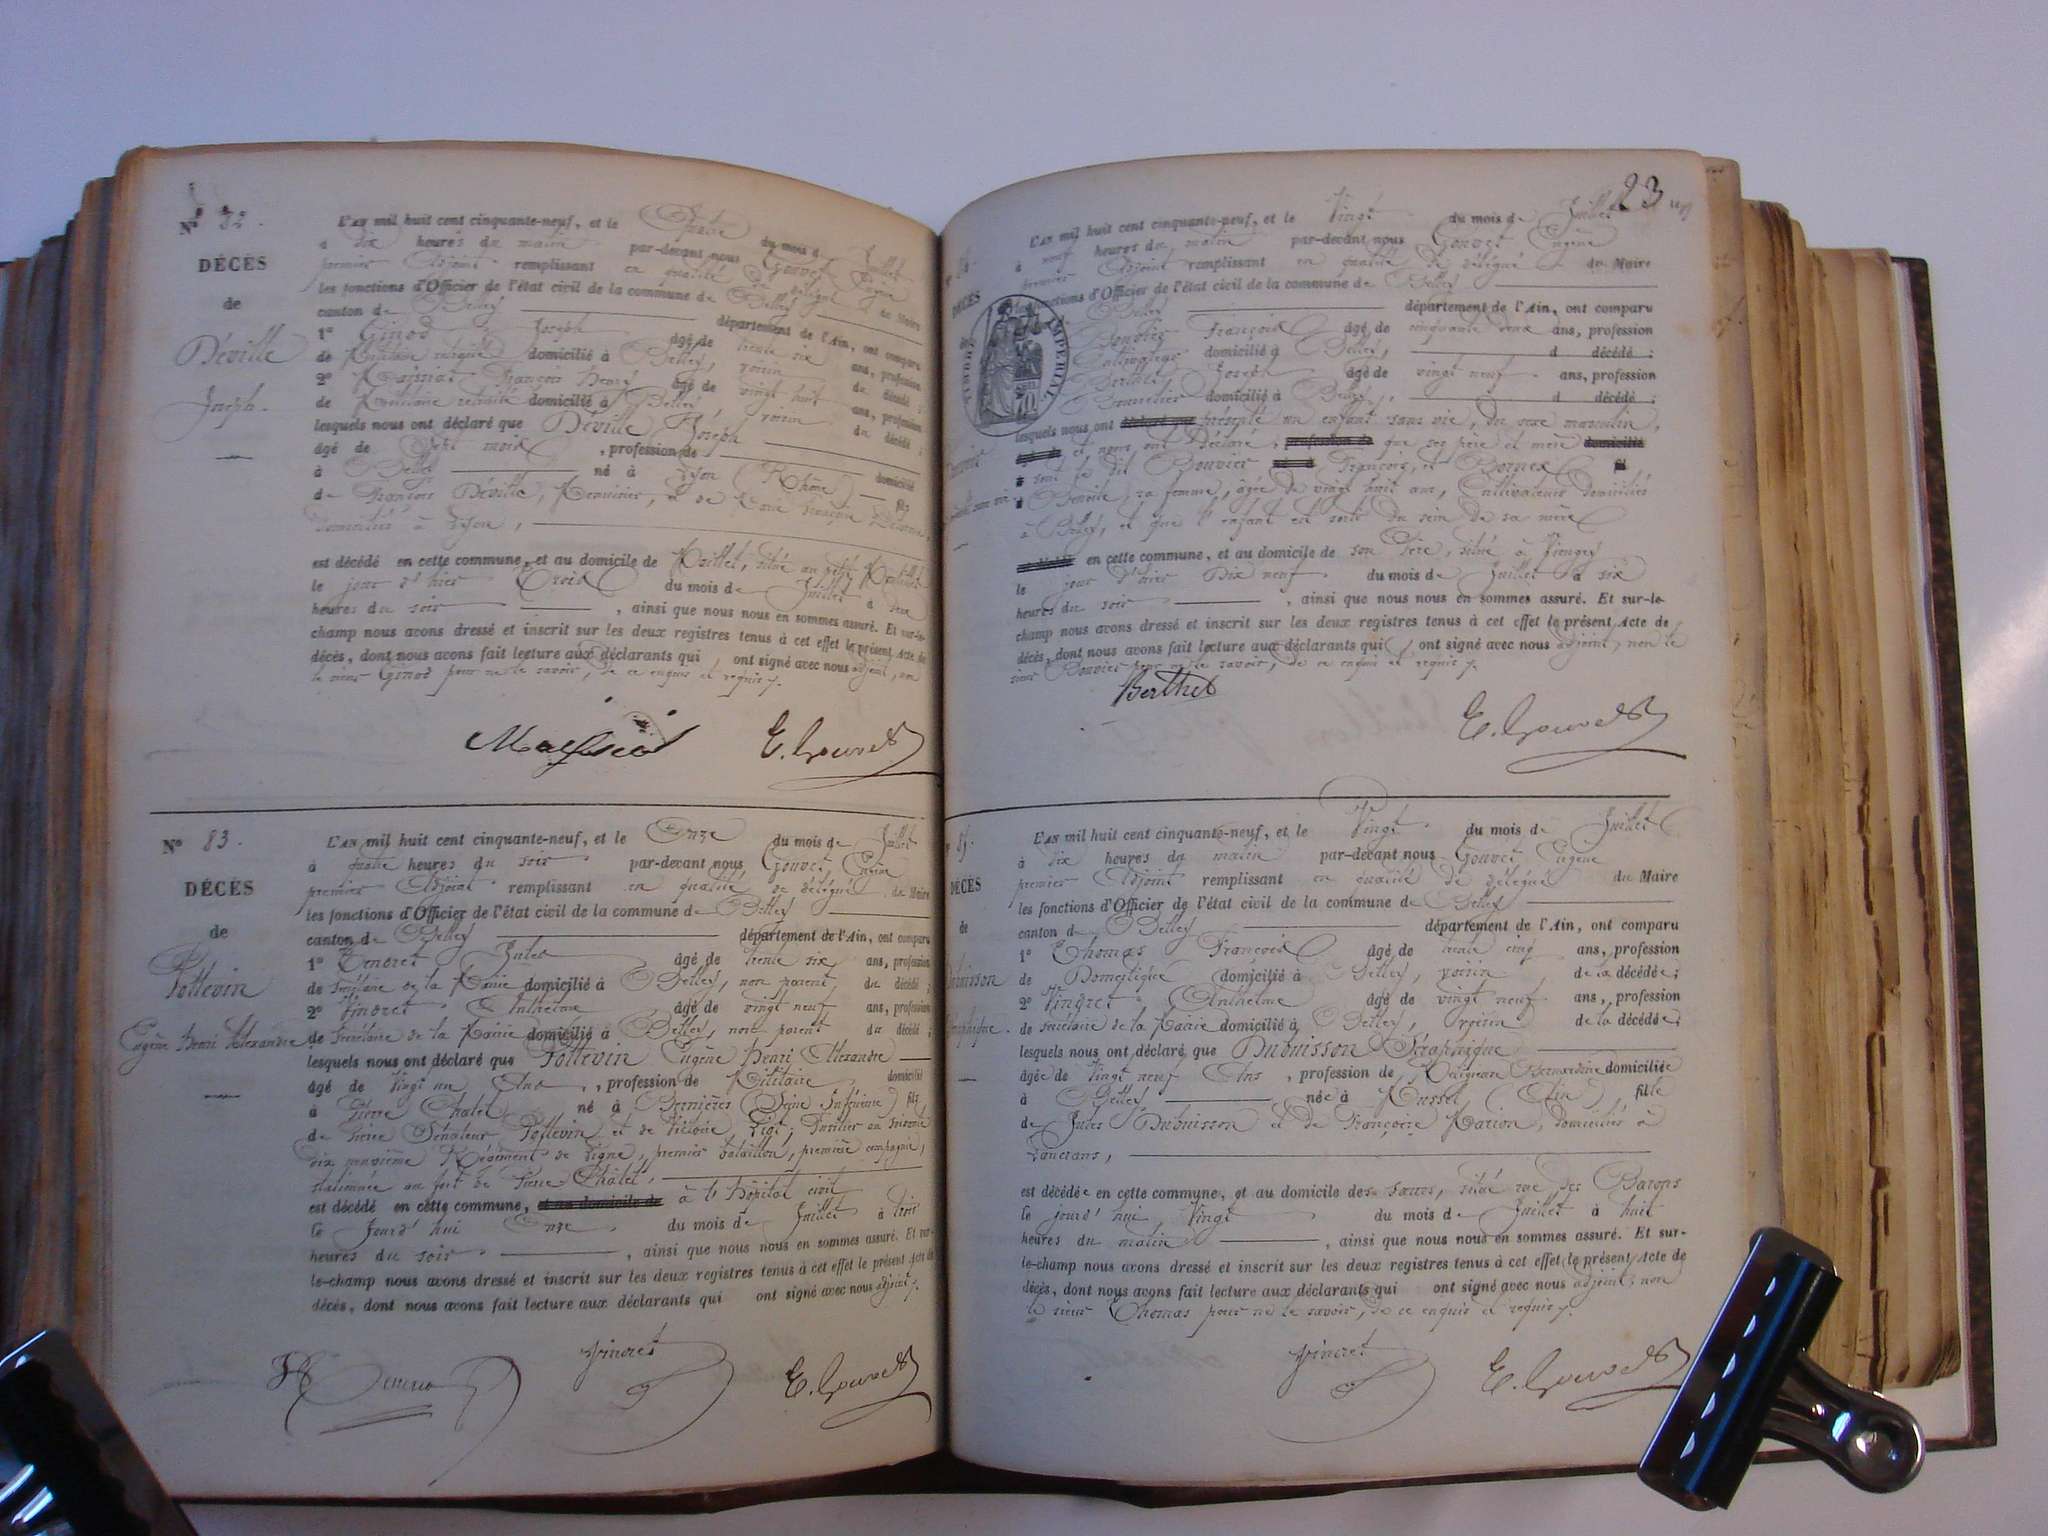 Nº 82.
DÉCÈS
de
Déville
Joseph.
L'AN mil huit cent cinquante-neuf, et le Quatre du mois de Juillet
à dix heures du matin par-devant nous Gouvet Eugène
premier Adjoint remplissant en qualité de délégué du Maire
les fonctions d'Officier de l'état civil de la commune de Belley
canton de Belley département de l'Ain, ont comparu
1º Ginod Joseph âgé de trente six ans, profession
de domicilié à Belley, voisin du décédé;
2º François Henri âgé de vingt huit ans, profession
de Militaire retraité domicilié à Belley, voisin du décédé;
lesquels nous ont déclaré que Déville Joseph
âgé de Sept mois, profession de domicilié
à Belley né à Lyon (Rhône) fils
de François Déville, Menuisier, et de Marie Françoise
domiciliés à Lyon,
est décédé en cette commune, et au domicile de situé au
le jour d'hier Trois du mois de Juillet à deux
heures du soir, ainsi que nous nous en sommes assuré. Et sur-le-
champ nous avons dressé et inscrit sur les deux registres tenus à cet effet le présent Acte de
décès, dont nous avons fait lecture aux déclarants qui ont signé avec nous adjoint, non
le sieur Ginod pour ne le savoir, de ce enquis et requis.
E. Gouvet
Nº 83.
DÉCÈS
de
Pottevin
Eugène Henri Alexandre
L'AN mil huit cent cinquante-neuf, et le Onze du mois de Juillet
à quatre heures du soir par-devant nous Gouvet Eugène
premier Adjoint remplissant en qualité de délégué du Maire
les fonctions d'Officier de l'état civil de la commune de Belley
canton de Belley département de l'Ain, ont comparu
1º Teneret Jules âgé de trente six ans, profession
de Secrétaire de la Mairie domicilié à Belley, non parent du décédé;
2º Vincret Anthelme âgé de vingt neuf ans, profession
de Secrétaire de la Mairie domicilié à Belley, non parent du décédé;
lesquels nous ont déclaré que Pottevin Eugène Henri Alexandre
âgé de Vingt un Ans, profession de Militaire domicilié
à Pierre Chatel né à Bernières (Seine Inférieure) fils
de Pierre Sénateur Pottevin et de Victoire Ligt; Fusilier au soixante
dix neuvième Régiment de ligne, premier bataillon, première compagnie,
stationnée au fort de Pierre Châtel,
est décédé en cette commune, et au domicile de à l'hôpital civil
le Jourd'hui Onze du mois de Juillet à trois
heures du soir, ainsi que nous nous en sommes assuré. Et sur-
le-champ nous avons dressé et inscrit sur les deux registres tenus à cet effet le présent Acte de
décès, dont nous avons fait lecture aux déclarants qui ont signé avec nous adjoint.
Vincret
E. Gouvet
23
DÉCÈS
TIMBRE IMPÉRIAL
L'AN mil huit cent cinquante-neuf, et le Vingt du mois de Juillet
à neuf heures du matin par-devant nous Gouvet Eugène
premier Adjoint remplissant en qualité de délégué du Maire
les fonctions d'Officier de l'état civil de la commune de Belley
Belley département de l'Ain, ont comparu
Bouvier François âgé de cinquante deux ans, profession
Cultivateur domicilié à Belley, d décédé;
Berthet Joseph âgé de vingt neuf ans, profession
domicilié à Belley, d décédé;
lesquels nous ont déclaré que présenté un enfant sans vie, du sexe masculin,
âgé de et, nous ont déclaré, profession de que ses père et mère domicilié
sont le dit Bouvier François, et Bornex
Benoite, sa femme, âgée de vingt huit ans, Cultivateurs domiciliés
à Belley, et que l'enfant est sorti du sein de sa mère
est décédé en cette commune, et au domicile de son Père, situé à
le jour d'hier Dix neuf du mois de Juillet à six
heures du soir, ainsi que nous nous en sommes assuré. Et sur-le-
champ nous avons dressé et inscrit sur les deux registres tenus à cet effet le présent Acte de
décès, dont nous avons fait lecture aux déclarants qui ont signé avec nous adjoint, non le
sieur Bouvier pour ne le savoir, de ce enquis et requis.
Berthet
E. Gouvet
85.
DÉCÈS
de
L'AN mil huit cent cinquante-neuf, et le Vingt du mois de Juillet
à dix heures du matin par-devant nous Gouvet Eugène
premier Adjoint remplissant en qualité de délégué du Maire
les fonctions d'Officier de l'état civil de la commune de Belley
canton de Belley département de l'Ain, ont comparu
1º Thomas François âgé de trente cinq ans, profession
de Domestique domicilié à Belley, voisin de la décédée;
2º Vincret Anthelme âgé de vingt neuf ans, profession
de Secrétaire de la Mairie domicilié à Belley, voisin de la décédée;
lesquels nous ont déclaré que Dubuisson Séraphique
âgée de Vingt neuf Ans, profession de Religieuse Bernardine domiciliée
à Belley née à Mussel (Ain) fille
de Jules Dubuisson et de Françoise Marion, domiciliés à
Lancrans,
est décédée en cette commune, et au domicile des Sœurs, situé rue des Barons
le jourd'hui Vingt du mois de Juillet à huit
heures du matin, ainsi que nous nous en sommes assuré. Et sur-
le-champ nous avons dressé et inscrit sur les deux registres tenus à cet effet le présent Acte de
décès, dont nous avons fait lecture aux déclarants qui ont signé avec nous adjoint, non
le sieur Thomas pour ne le savoir, de ce enquis et requis.
Vincret
E. Gouvet